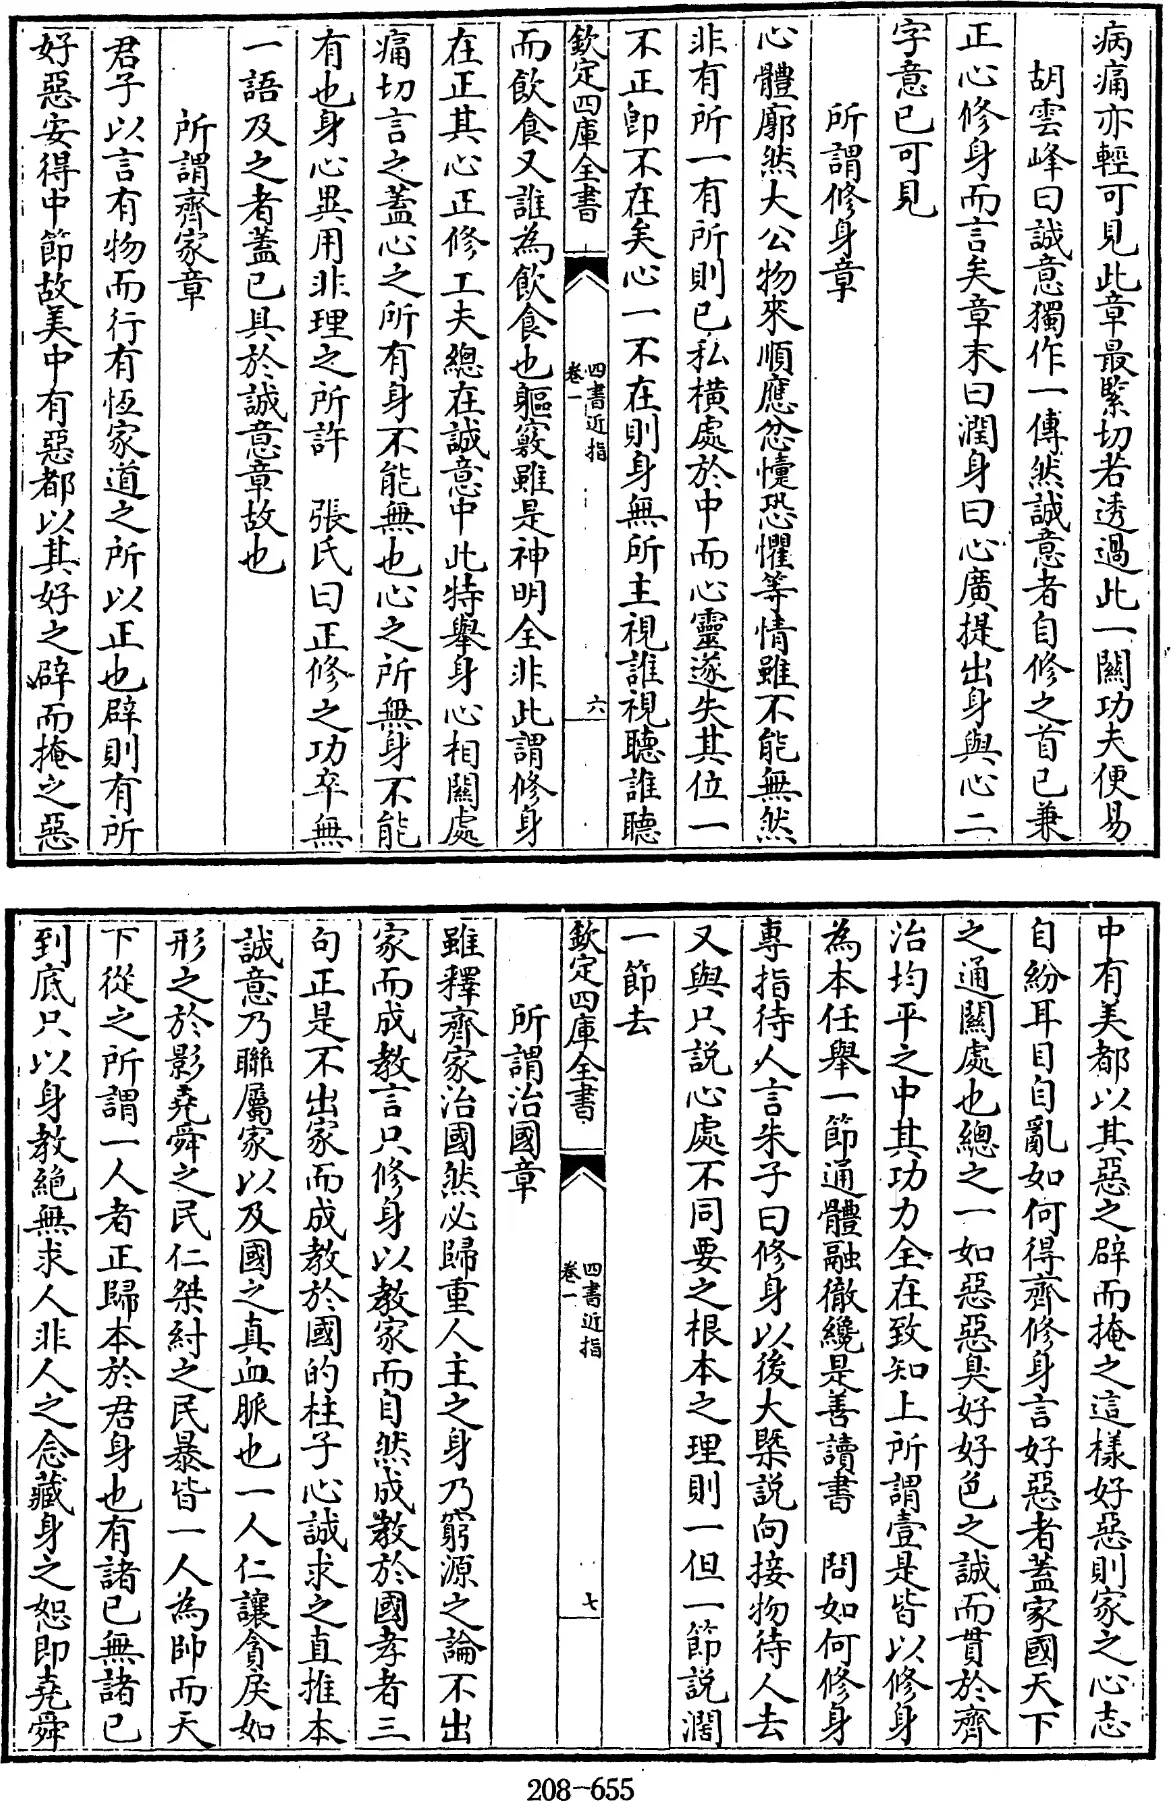 病痛亦輕可見此章最緊切若透過此一關功夫便易
胡雲峰曰誠意獨作一傳然誠意者自修之首已兼
正心修身而言矣章末曰潤身曰心廣提出身與心二
字意已可見
所謂修身章
心體廓然大公物來順應忿懥恐懼等情雖不能無然
非有所一有所則已私橫處於中而心靈遂失其位一
不正即不在矣心一不在則身無所主視誰視聽誰聽
欽定四庫全書
四書近指
卷一
六
而飲食又誰為飲食也軀竅雖是神明全非此謂修身
在正其心正修工夫總在誠意中此特舉身心相關處
痛切言之蓋心之所有身不能無也心之所無身不能
有也身心異用非理之所許 張氏曰正修之功卒無
一語及之者蓋已具於誠意章故也
所謂齊家章
君子以言有物而行有恆家道之所以正也辟則有所
好惡安得中節故美中有惡都以其好之辟而掩之惡
中有美都以其惡之辟而掩之這樣好惡則家之心志
自紛耳目自亂如何得齊修身言好惡者蓋家國天下
之通關處也總之一如惡惡臭好好色之誠而貫於齊
治均平之中其功力全在致知上所謂壹是皆以修身
為本任舉一節通體融徹纔是善讀書 問如何修身
專指待人言朱子曰修身以後大槩説向接物待人去
又與只説心處不同要之根本之理則一但一節説濶
一節去
欽定四庫全書
四書近指
卷一
七
所謂治國章
雖釋齊家治國然必歸重人主之身乃窮源之論不出
家而成教言只修身以教家而自然成教於國孝者三
句正是不出家而成教於國的柱子心誠求之直推本
誠意乃聯屬家以及國之真血脈也一人仁讓貪戾如
形之於影堯舜之民仁桀紂之民暴皆一人為帥而天
下從之所謂一人者正歸本於君身也有諸已無諸已
到底只以身教絕無求人非人之念藏身之恕即堯舜
208-655